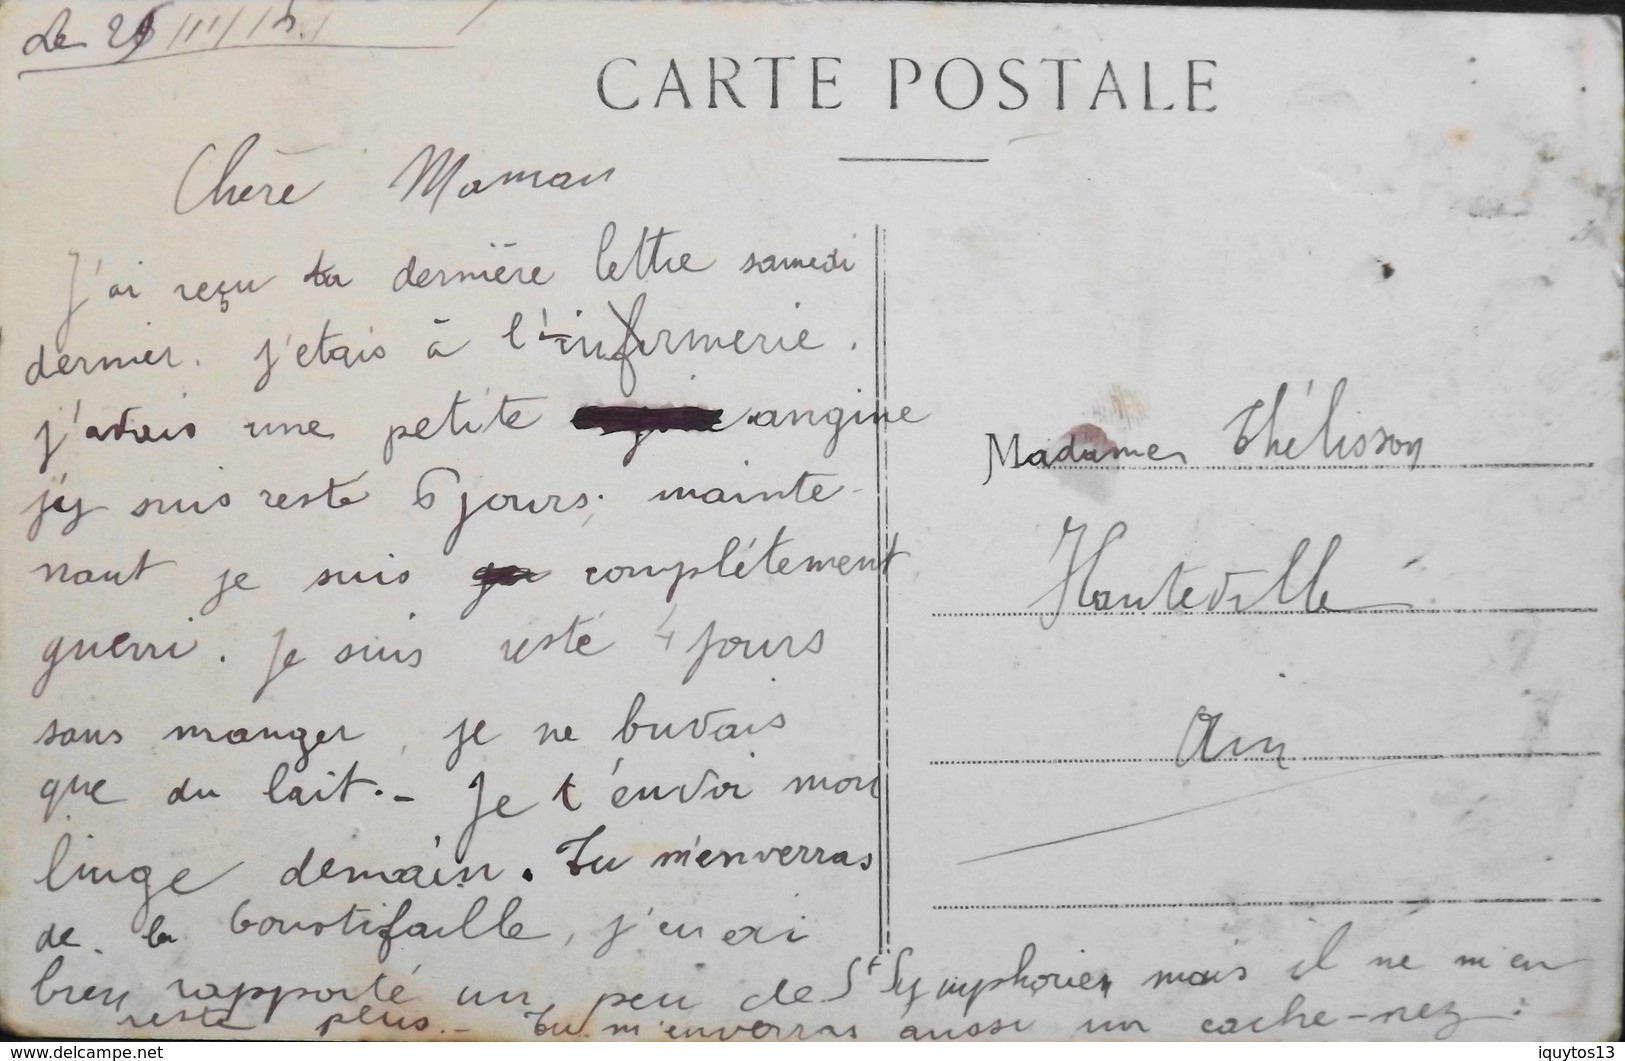 Le 25/III/15.
CARTE POSTALE
Chère Maman
J'ai reçu ta dernière lettre samedi
dernier. j'etais à l'infirmerie.
j'avais une petite angine
j'y suis resté 6 jours; mainte-
nant je suis complétement
guerri. Je suis resté 4 jours
sans manger, je ne buvais
que du lait.- Je t'envoi mon
linge demain. Tu m'enverras
de la boustifaille, j'en ai
bien rapporté un peu de St Symphorien mais il ne m'en
reste plus.- Tu m'enverras aussi un cache-nez.
Madame Thélisson
Hauteville
Ain
iquytos13